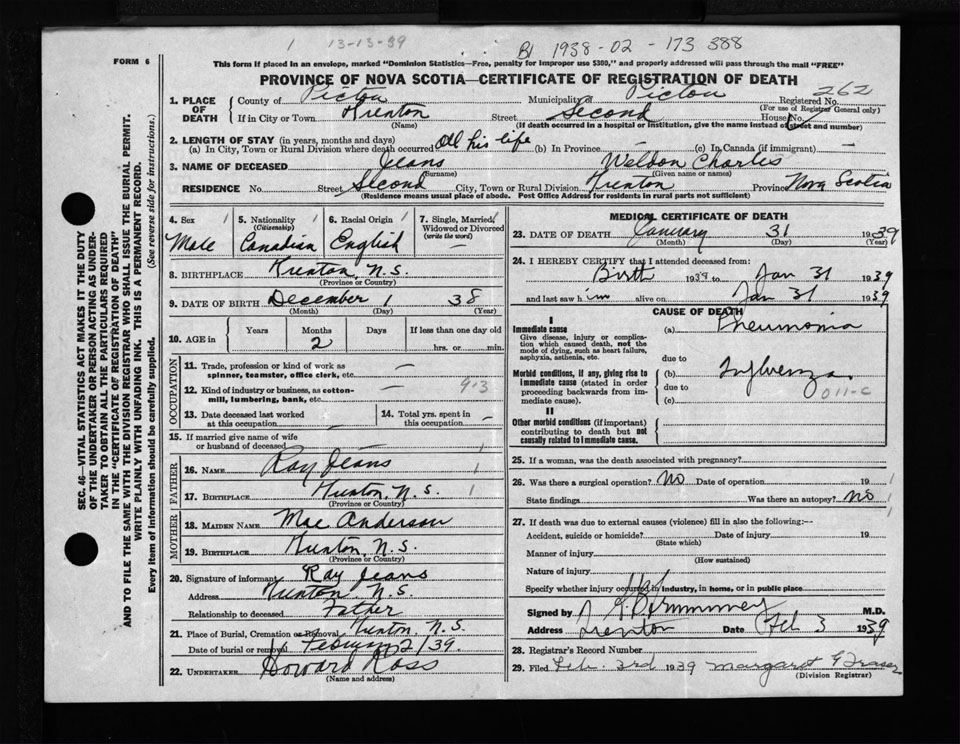 1 13-13-39
B1 1938-02-173 388
FORM 6
This form if placed in an envelope, marked "Dominion Statistics—Free, penalty for improper use $300," and properly addressed will pass through the mail "FREE"
PROVINCE OF NOVA SCOTIA—CERTIFICATE OF REGISTRATION OF DEATH
262
1. PLACE OF DEATH { County of Pictou Municipality of Pictou Registered No.
(For use of Registrar General only)
If in City or Town Trenton Street Second House No.
(Name) (If death occurred in a hospital or institution, give the name instead of street and number)
2. LENGTH OF STAY (in years, months and days)
(a) In City, Town or Rural Division where death occurred All his life (b) In Province — (c) In Canada (if immigrant) —
3. NAME OF DECEASED Jeans Weldon Charles
(Surname) (Given name or names)
RESIDENCE No. Street Second City, Town or Rural Division Trenton Province Nova Scotia
(Residence means usual place of abode. Post Office Address for residents in rural parts not sufficient)
SEC. 46—VITAL STATISTICS ACT MAKES IT THE DUTY
OF THE UNDERTAKER OR PERSON ACTING AS UNDER-
TAKER TO OBTAIN ALL THE PARTICULARS REQUIRED
IN THE "CERTIFICATE OF REGISTRATION OF DEATH"
AND TO FILE THE SAME WITH THE DIVISION REGISTRAR WHO SHALL ISSUE THE BURIAL PERMIT.
WRITE PLAINLY WITH UNFADING INK. THIS IS A PERMANENT RECORD.
Every item of Information should be carefully supplied. (See reverse side for instructions.)
4. Sex 1 5. Nationality 1 6. Racial Origin 1 7. Single, Married 1
(Citizenship) Widowed or Divorced
(write the word)
Male Canadian English —
8. BIRTHPLACE Trenton, N.S.
(Province or Country)
9. DATE OF BIRTH December 1 38
(Month) (Day) (Year)
10. AGE in { Years Months Days If less than one day old
2 hrs. or min.
OCCUPATION
11. Trade, profession or kind of work as
spinner, teamster, office clerk, etc. —
12. Kind of industry or business, as cotton-
mill, lumbering, bank, etc. — 9-3
13. Date deceased last worked
at this occupation —
14. Total yrs. spent in
this occupation —
15. If married give name of wife
or husband of deceased —
FATHER
16. NAME Ray Jeans 1
17. BIRTHPLACE Trenton, N.S. 1
(Province or Country)
MOTHER
18. MAIDEN NAME Mae Anderson
19. BIRTHPLACE Trenton, N.S.
(Province or Country)
20. Signature of informant Ray Jeans
Address Trenton N.S.
Relationship to deceased Father
21. Place of Burial, Cremation or Removal Trenton, N.S.
Date of burial or removal February 2/39.
22. UNDERTAKER Howard Ross
(Name and address)
MEDICAL CERTIFICATE OF DEATH
23. DATE OF DEATH January 31 1939
(Month) (Day) (Year)
24. I HEREBY CERTIFY that I attended deceased from:
Birth 1938 to Jan 31 1939
and last saw him alive on Jan 31 1939
CAUSE OF DEATH
I
Immediate cause (a) Pneumonia
Give disease, injury or complica-
tion which caused death, not the
mode of dying, such as heart failure,
asphyxia, asthenia, etc.
due to
Morbid conditions, if any, giving rise to
immediate cause (stated in order
proceeding backwards from im-
mediate cause).
(b) Influenza
due to
(c) 011-C
II
Other morbid conditions (if important)
contributing to death but not
causally related to immediate cause.
25. If a woman, was the death associated with pregnancy?
26. Was there a surgical operation? No Date of operation 19
State findings Was there an autopsy? No
27. If death was due to external causes (violence) fill in also the following:—
Accident, suicide or homicide? Date of injury 19
(State which)
Manner of injury
(How sustained)
Nature of injury
Specify whether injury occurred in industry, in home, or in public place
Signed by M.D.
Address Trenton Date Feb 3 1939
28. Registrar's Record Number
29. Filed Feb. 3rd 1939 Margaret G Fraser
(Division Registrar)